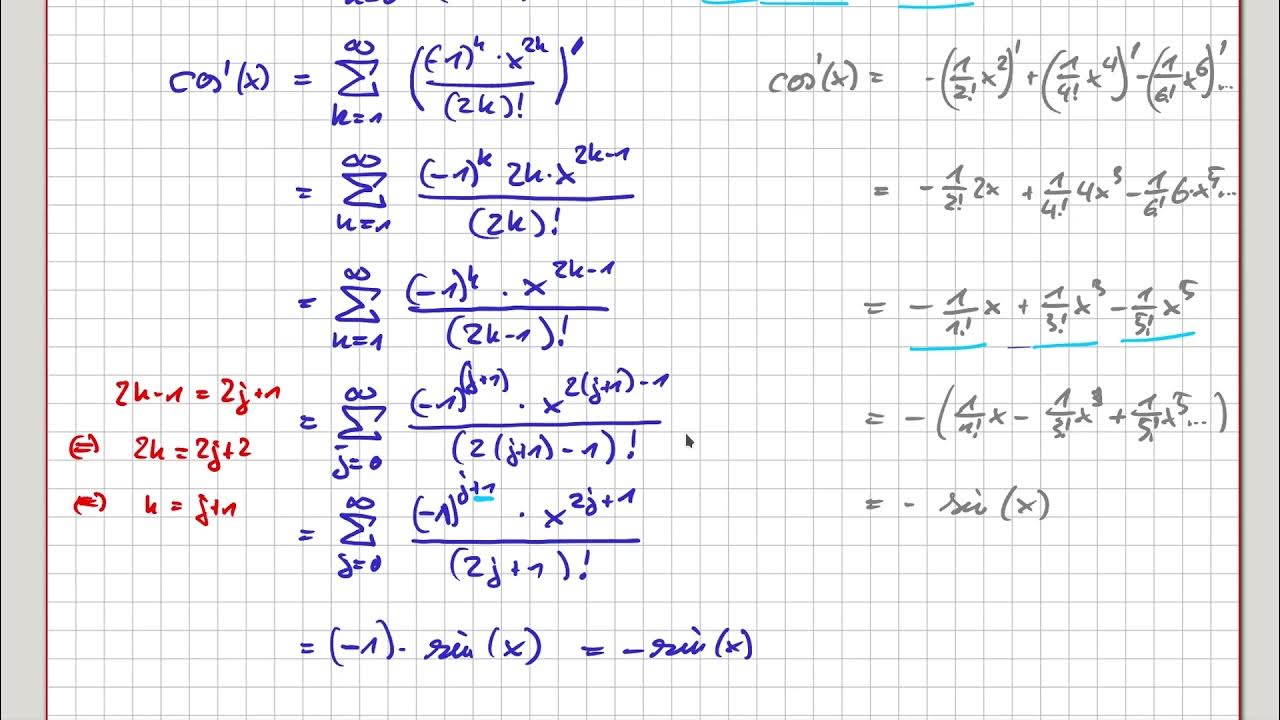 cos'(x) = ∑_{k=1}^{∞} ( (-1)^k · x^{2k} / (2k)! )'
= ∑_{k=1}^{∞} (-1)^k 2k·x^{2k-1} / (2k)!
= ∑_{k=1}^{∞} (-1)^k · x^{2k-1} / (2k-1)!
2k-1 = 2j+1
⇔ 2k = 2j+2
⇔ k = j+1
= ∑_{j=0}^{∞} (-1)^{(j+1)} · x^{2(j+1)-1} / (2(j+1)-1)!
= ∑_{j=0}^{∞} (-1)^{j+1} · x^{2j+1} / (2j+1)!
= (-1)· sin(x) = -sin(x)
cos'(x) = -(1/2! x^2)' + (1/4! x^4)' - (1/6! x^6)' ...
= - 1/2! 2x + 1/4! 4x^3 - 1/6! 6·x^5 ...
= - 1/1! x + 1/3! x^3 - 1/5! x^5
= - ( 1/1! x - 1/3! x^3 + 1/5! x^5 ... )
= - sin(x)